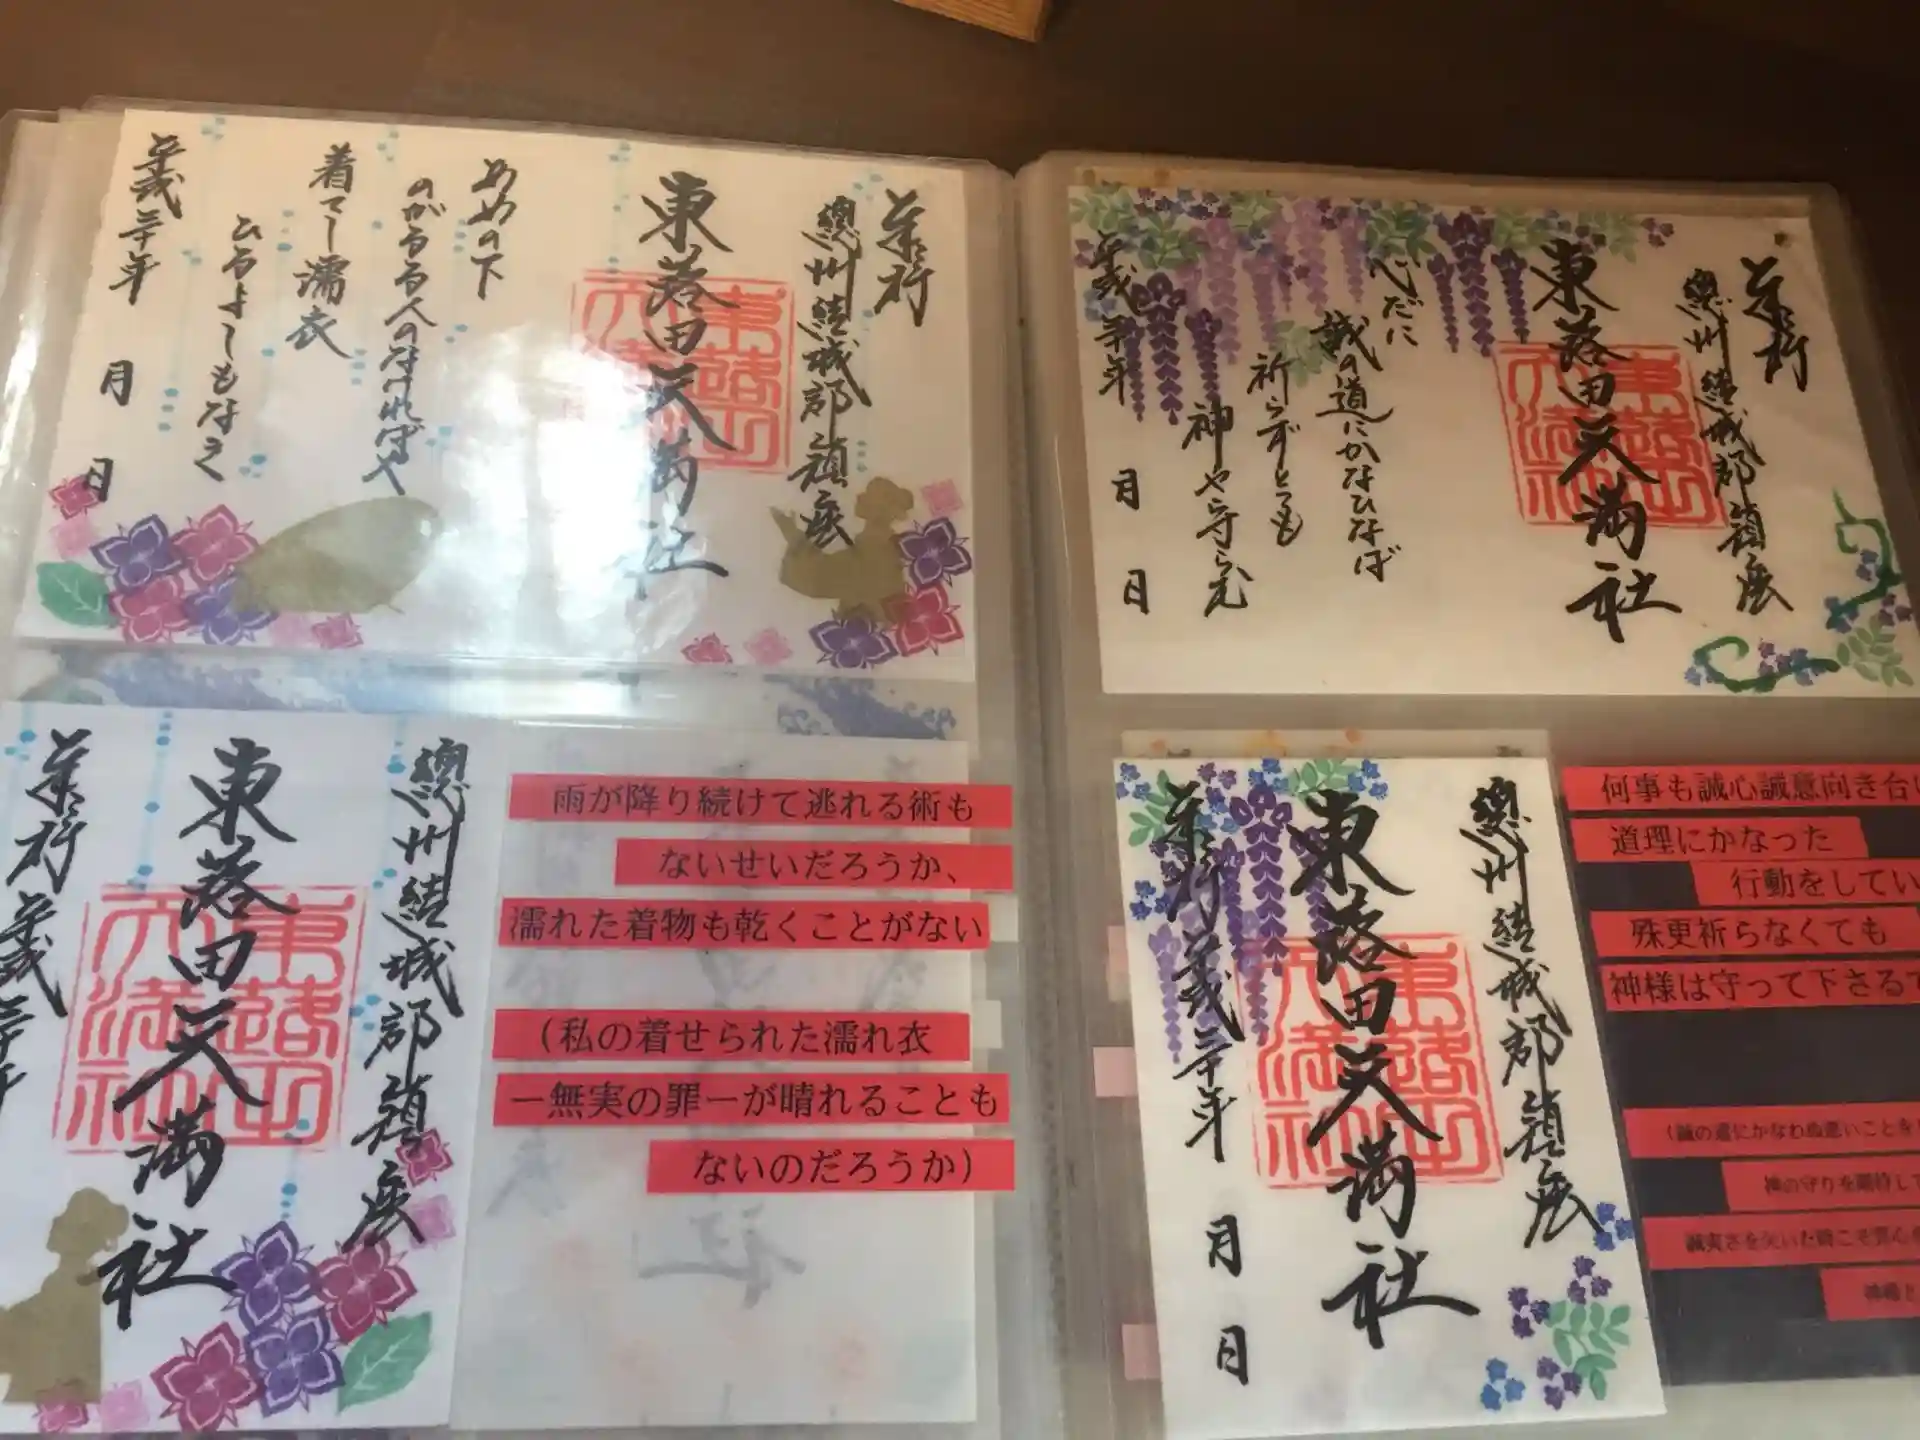 東蕗田天満社
總州結城郡鎮座
あめの下
のがるる人のなければや
着てし濡衣
ひるよしもなき
平成三十年
月
日
東蕗田天満社
總州結城郡鎮座
心だに
誠の道にかなひなば
祈らずとても
神や守らむ
平成三十年
月
日
總州結城郡鎮座
東蕗田天満社
雨が降り続けて逃れる術も
ないせいだろうか、
濡れた着物も乾くことがない
（私の着せられた濡れ衣
ー無実の罪ーが晴れることも
ないのだろうか）
總州結城郡鎮座
東蕗田天満社
平成三十年
月
日
何事も誠心誠意向き合い
道理にかなった
行動をしてい
殊更祈らなくても
神様は守って下さる
（誠の道にかなわぬ悪いことを
神の守りを期待して
誠実さを欠いた時こそ